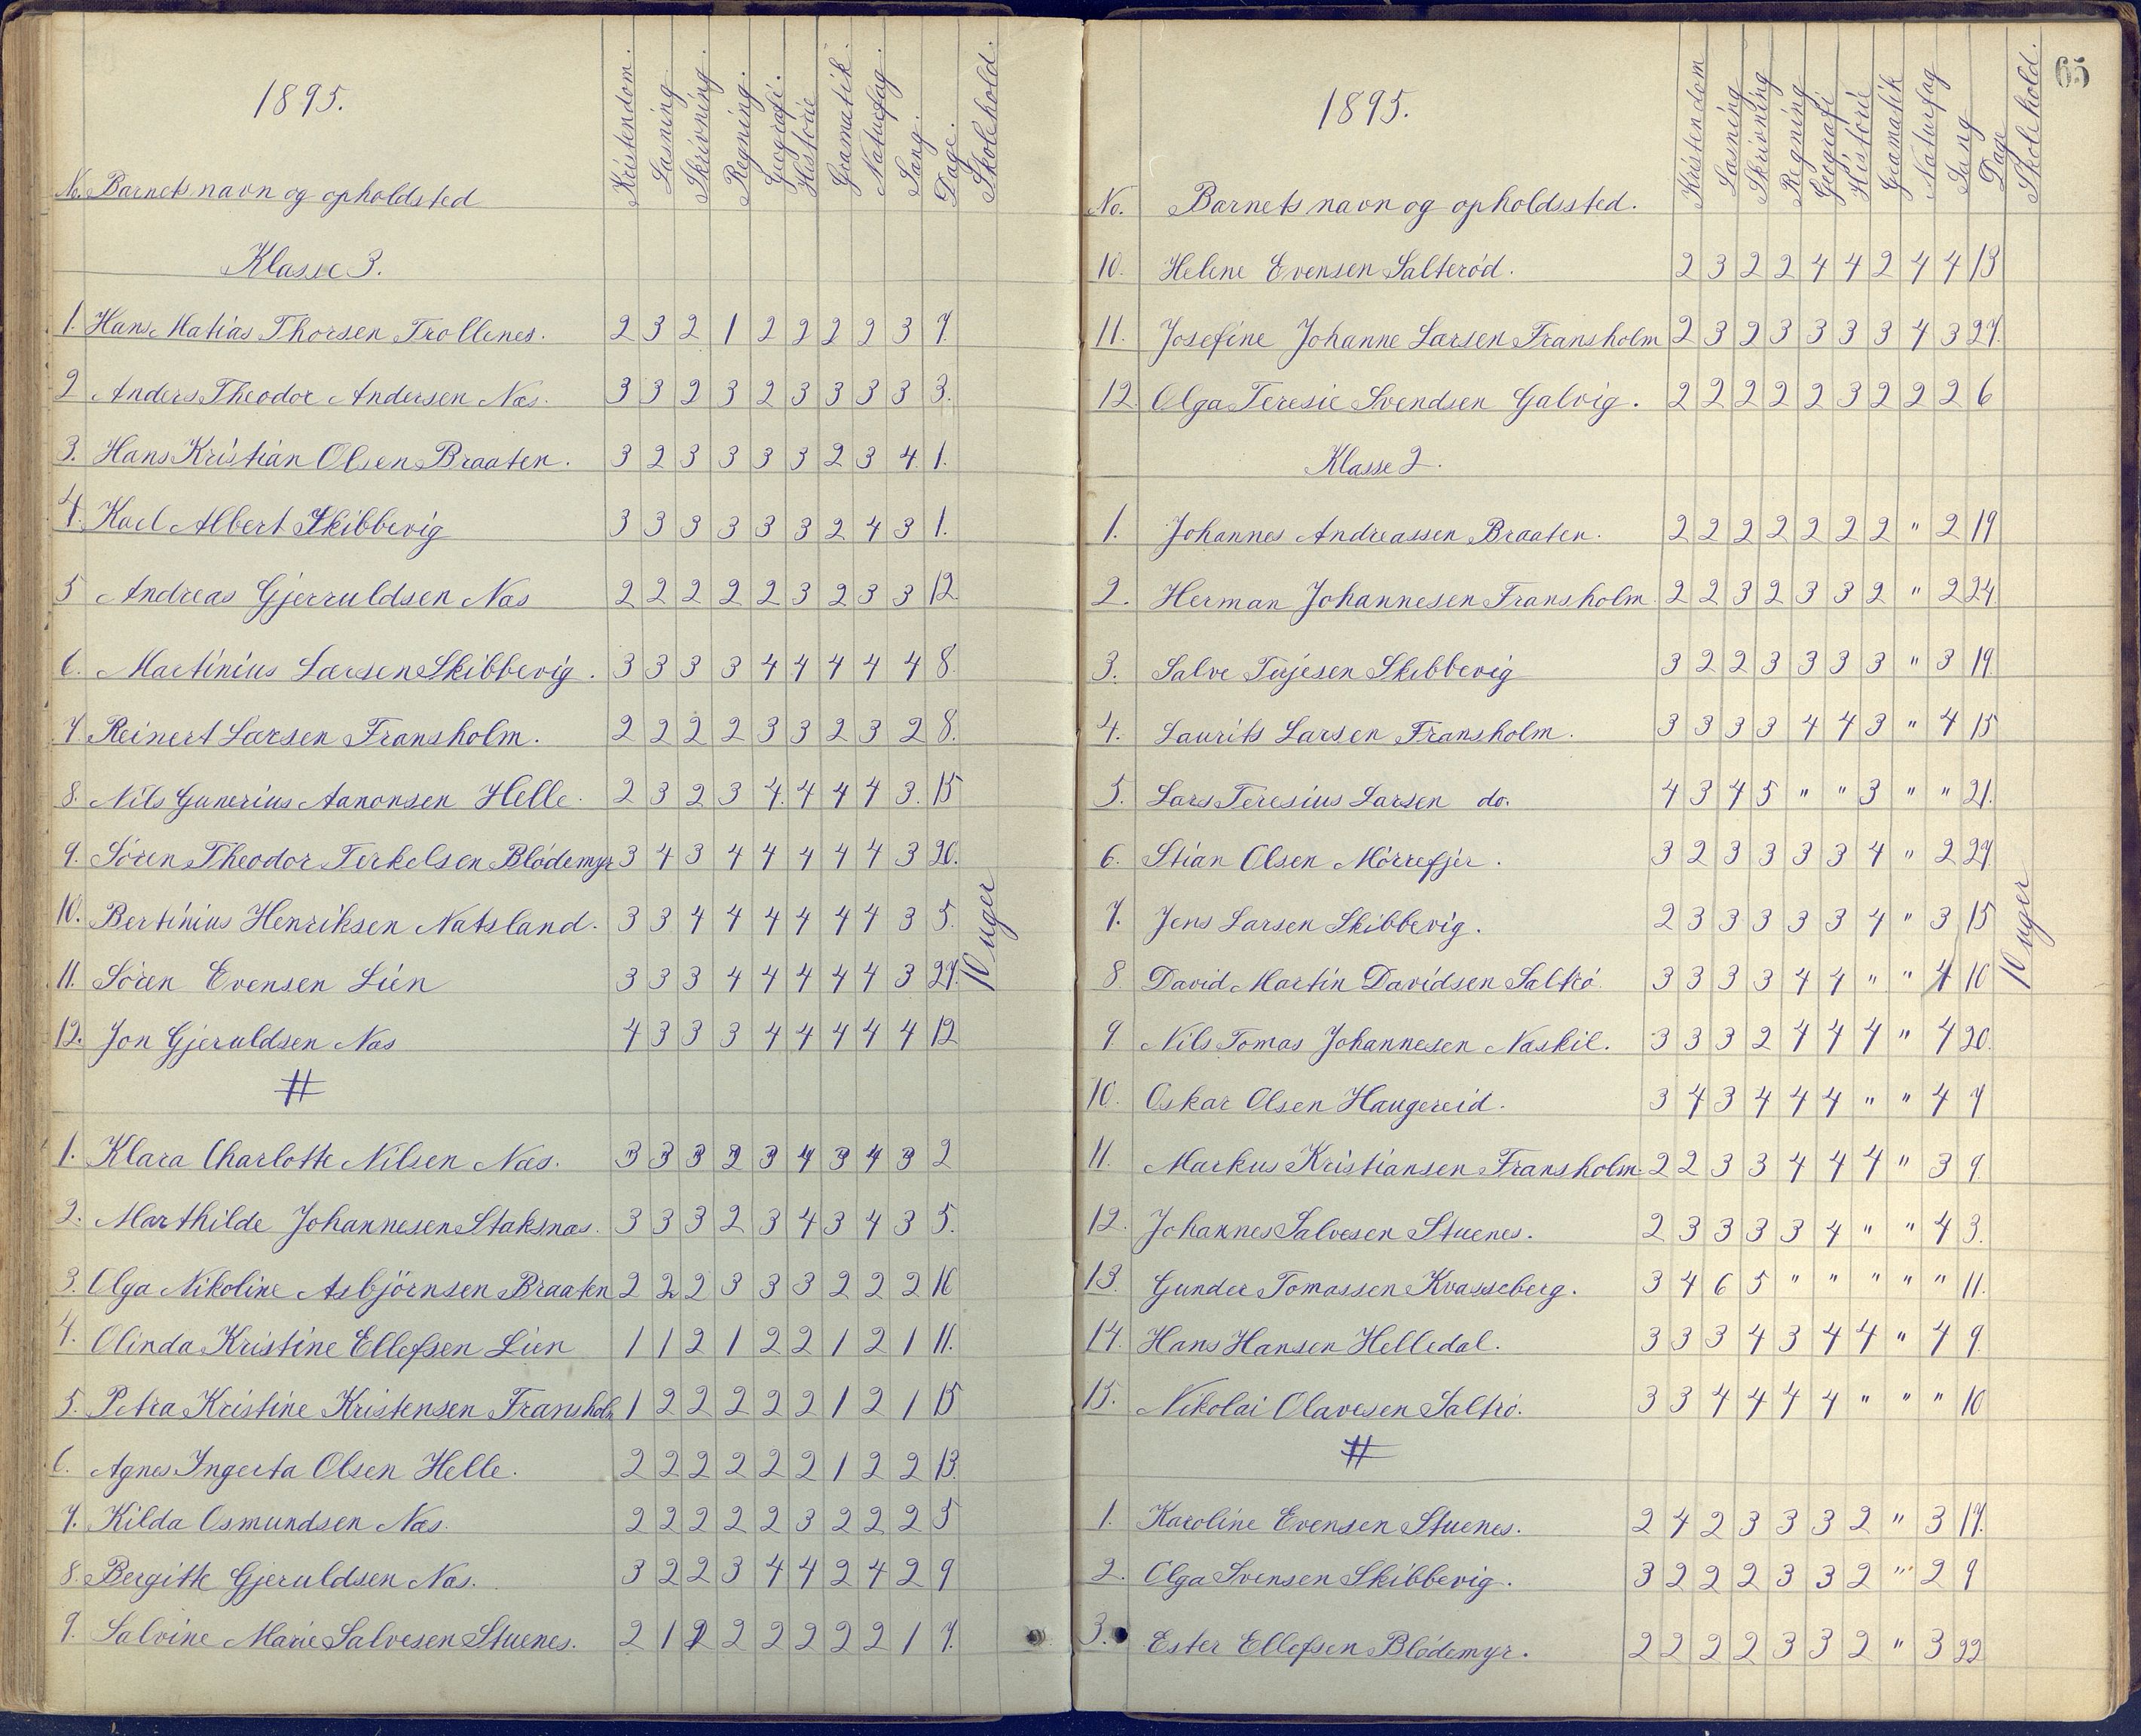 1895.
No. Barnets navn og opholdsted Kristendom. Læsning. Skrivning. Regning. Geografi. Historie Gramatik. Naturfag. Sang. Dage. Skolehold.
Klasse 3.
1. Hans Matias Thorsen Trollenes. 2 3 2 1 2 2 2 2 3 7.
2 Anders Theodor Andersen Næs. 3 3 2 3 2 3 3 3 3 3.
3. Hans Kristian Olsen Braaten. 3 2 3 3 3 3 2 3 4. 1.
4. Karl Albert Skibbevig 3 3 3 3 3 3 2 4 3 1.
5 Andreas Gjerruldsen Næs 2 2 2 2 2 3 2 3 3 12
6. Martinius Larsen Skibbevig. 3 3 3 3 4 4 4 4 4 8.
7. Reinert Larsen Fransholm. 2 2 2 2 3 3 2 3 2 8.
8. Nils Gunerius Aanonsen Helle. 2 3 2 3 4. 4 4 4 3. 15
9. Sören Theodor Terkelsen Blödemyr 3 4 3 4 4 4 4 4 3 20.
10. Bertinius Henriksen Natsland. 3 3 4 4 4 4 4 4 3 5.
11. Sören Evensen Lien 3 3 3 4 4 4 4 4 3 27.
12. Jon Gjeruldsen Næs 4 3 3 3 4 4 4 4 4 12
#
1. Klara Charlotte Nilsen Næs. 3 3 3 2 3 4 3 4 3 2
2. Marthilde Johannesen Staksnæs. 3 3 3 2 3 4 3 4 3 5.
3. Olga Nikoline Asbjörnsen Braaten 2 2 2 3 3 3 2 2 2 16
4. Olinda Kristine Ellefsen Lien 1 1 2 1 2 2 1 2 1 11.
5. Petra Kristine Kristensen Fransholm 1 2 2 2 2 2 1 2 1 15
6. Agnes Ingerta Olsen Helle. 2 2 2 2 2 2 1 2 2 13.
7. Kilda Osmundsen Næs. 2 2 2 2 2 3 2 2 2 5
8. Bergitte Gjeruldsen Næs. 3 2 2 3 4 4 2 4 2 9
9. Salvine Marie Salvesen Stuenes. 2 1 2 2 2 2 2 2 1 7.
10 uger
65
1895.
No. Barnets navn og opholdssted. Kristendom Læsning Skrivning Regning Geografi Historie Gramatik Naturfag Sang Dage Skolehold.
10. Helene Evensen Salteröd. 2 3 2 2 4 4 2 4 4 13
11. Josefine Johanne Larsen Fransholm 2 3 2 3 3 3 3 4 3 27.
12. Olga Teresie Svendsen Galvig. 2 2 2 2 2 3 2 2 2 6
Klasse 2.
1. Johannes Andreassen Braaten. 2 2 2 2 2 2 2 " 2 19
2. Herman Johannesen Fransholm. 2 2 3 2 3 3 2 " 2 24.
3. Salve Terjesen Skibbevig 3 2 2 3 3 3 3 " 3 19.
4. Laurits Larsen Fransholm. 3 3 3 3 4 4 3 " 4 15
5. Lars Teresius Larsen do. 4 3 4 5 " " 3 " " 21.
6. Stian Olsen Mörrefjer. 3 2 3 3 3 3 4 " 2 27.
7. Jens Larsen Skibbevig. 2 3 3 3 3 3 4 " 3 15
8. David Martin Davidsen Saltrö. 3 3 3 3 4 4 " " 4 10
9. Nils Tomas Johannesen Næskil. 3 3 3 2 4 4 4 " 4 20.
10. Oskar Olsen Haugereid. 3 4 3 4 4 4 " " 4 7
11. Markus Kristiansen Fransholm. 2 2 3 3 4 4 4 " 3 9.
12. Johannes Salvesen Stuenes. 2 3 3 3 3 4 " " 4 3.
13. Gunder Tomassen Kvasseberg. 3 4 6 5 " " " " " 11.
14. Hans Hansen Helledal. 3 3 3 4 3 4 4 " 4 9.
15. Nikolai Olavesen Saltrö. 3 3 4 4 4 4 " " " 10
#
1. Karoline Evensen Stuenes. 2 4 2 3 3 3 2 " 3 17.
2. Olga Svensen Skibbevig. 3 2 2 2 3 3 2 " 2 9
3. Ester Ellefsen Blödemyr. 2 2 2 2 3 3 2 " 3 22
10 uger